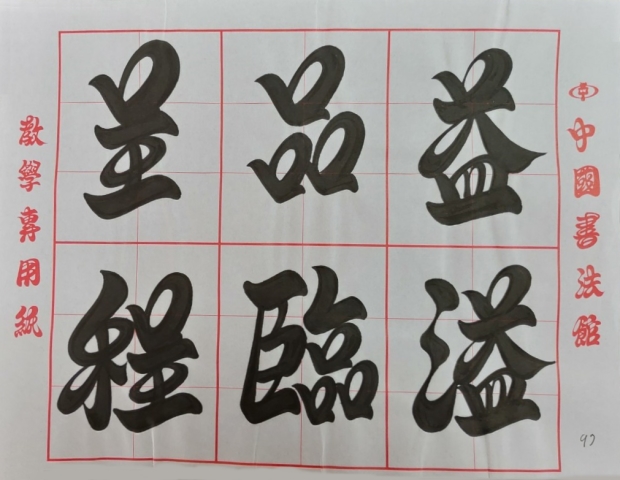 中國書法館
益溢
品臨
呈程
教學專用紙